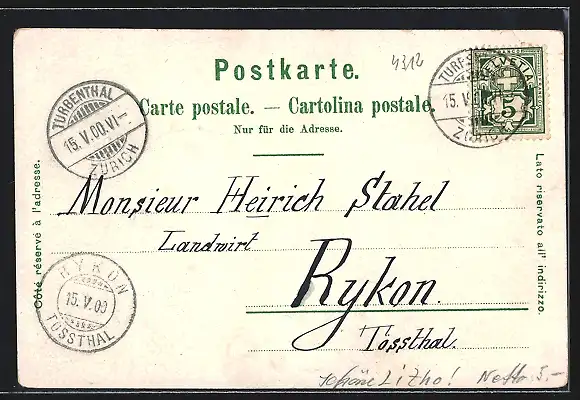 4312
Postkarte.
Carte postale. — Cartolina postale.
Nur für die Adresse.
TURBENTHAL
15. V. 00. VI–
ZÜRICH
15. V.
HELVETIA
5
Côté réservé à l'adresse.
Lato riservato all' indirizzo.
Monsieur Heirich Stahel
Landwirt
Rykon.
Tössthal.
RYKON
15. V. 00
TÖSSTHAL
schöne Litho! Netto 5,-